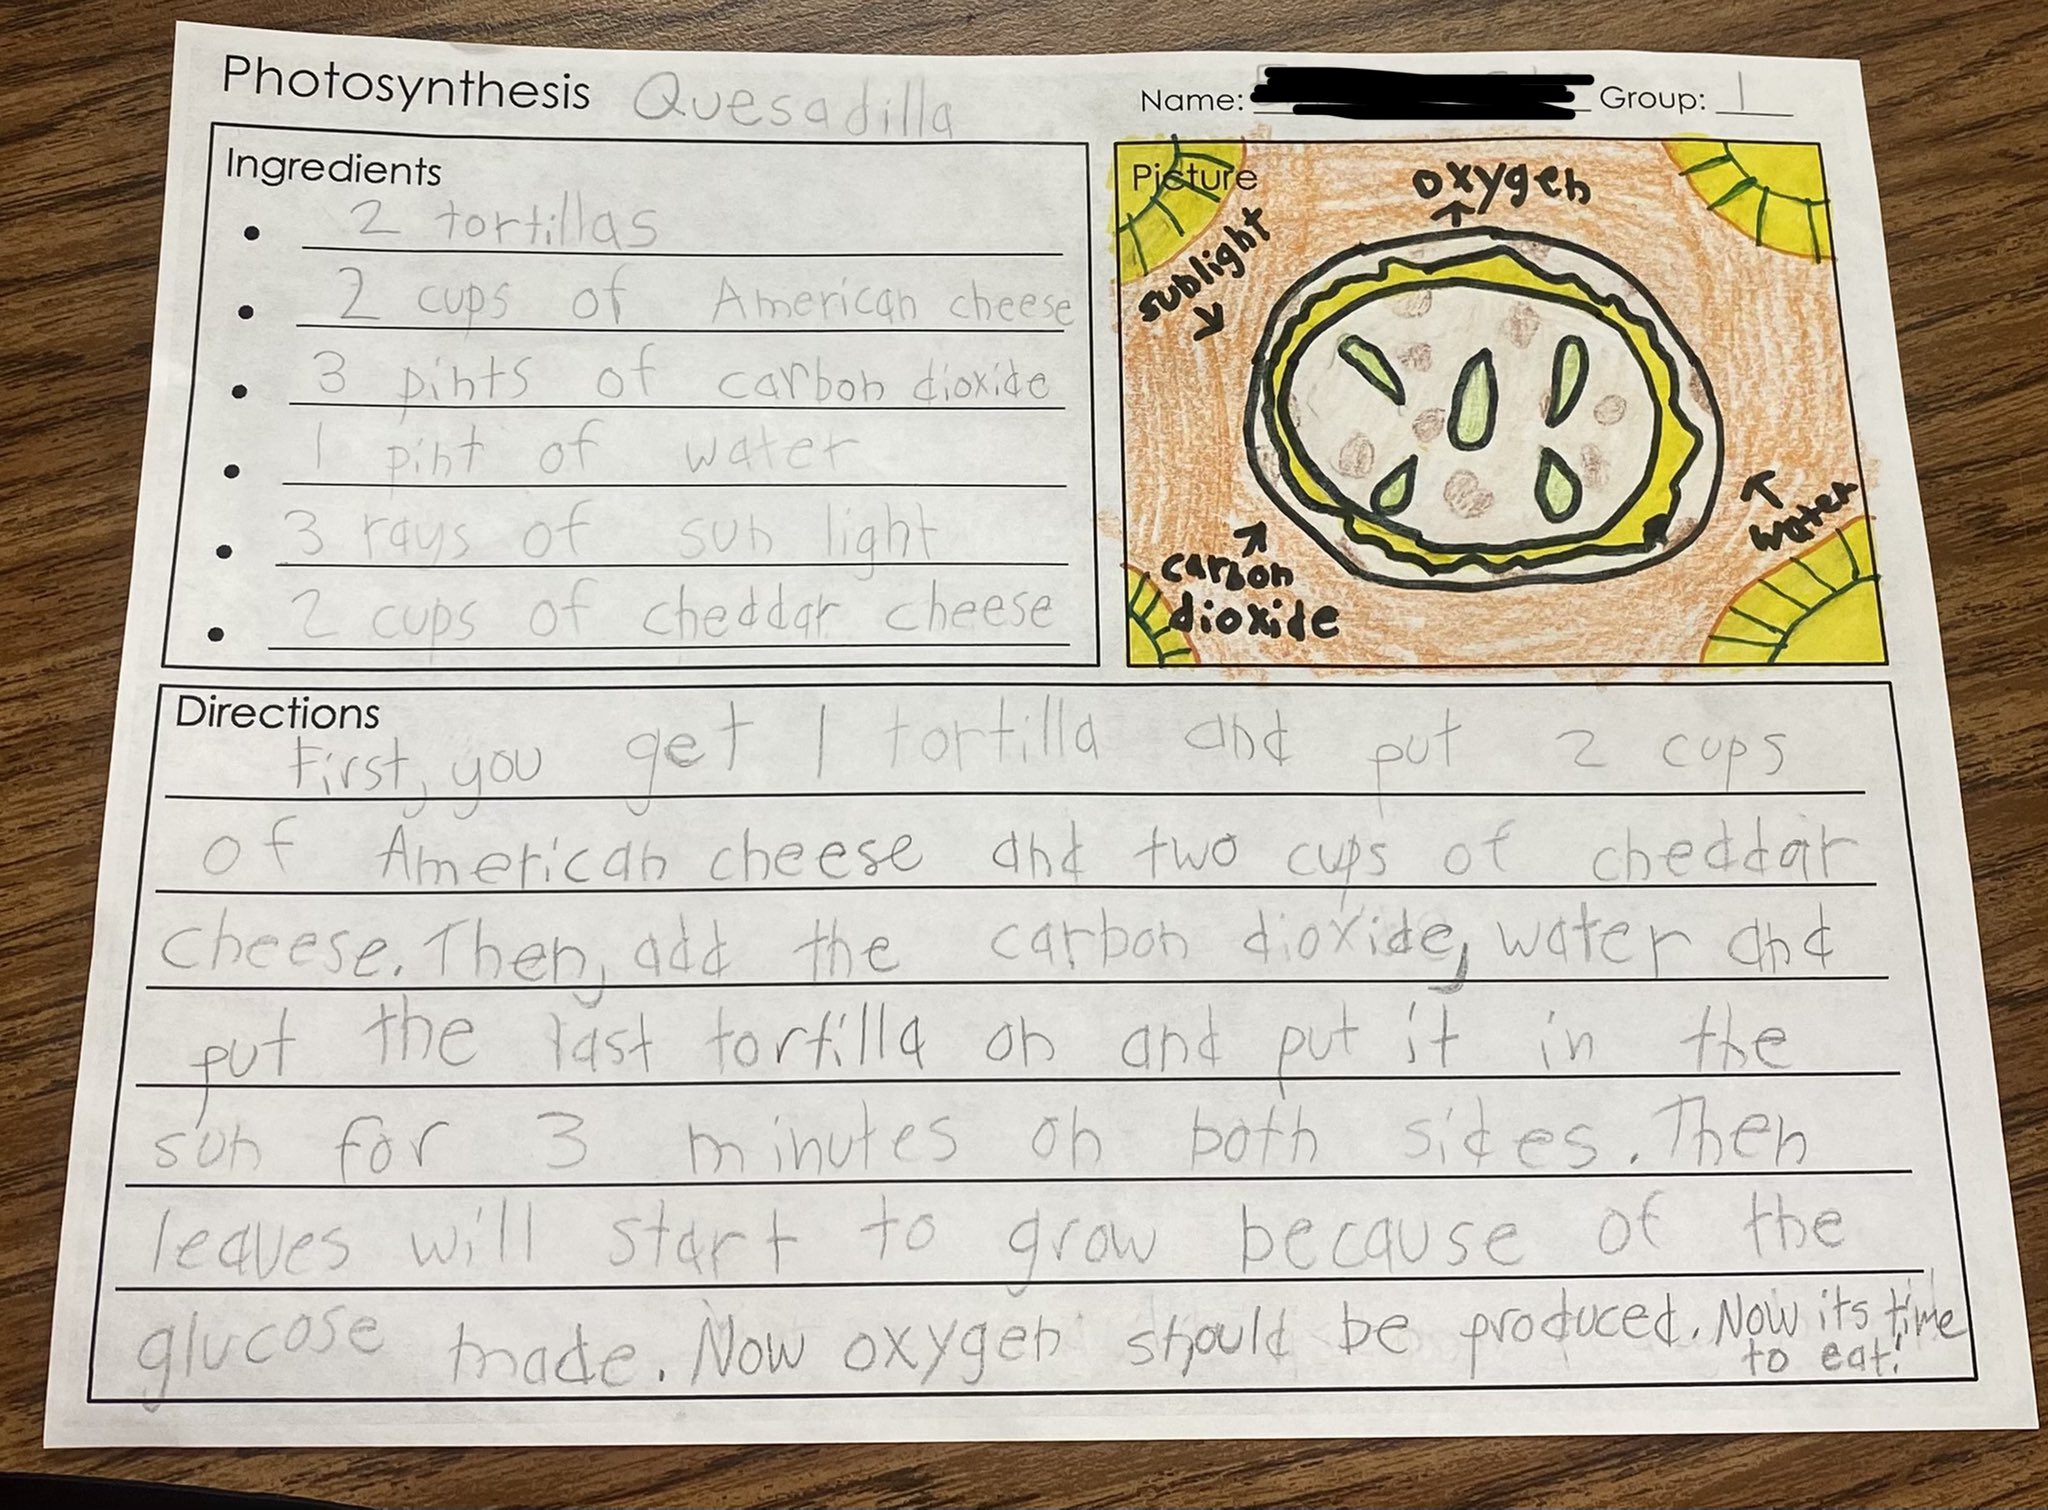 Photosynthesis Quesadilla
Name: Group: 1
Ingredients
• 2 tortillas
• 2 cups of American cheese
• 3 pints of carbon dioxide
• 1 pint of water
• 3 rays of sun light
• 2 cups of cheddar cheese
Picture
oxygen
sunlight
water
carbon
dioxide
Directions
First, you get 1 tortilla and put 2 cups
of American cheese and two cups of cheddar
cheese. Then, add the carbon dioxide, water and
put the last tortilla on and put it in the
sun for 3 minutes on both sides. Then
leaves will start to grow because of the
glucose made. Now oxygen should be produced. Now its time
to eat!